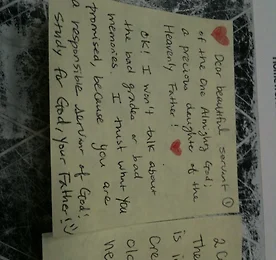 Dear beautiful servant ①
of the One Almighty God;
a precious daughter of the
Heavenly Father!
OK! I won't talk about
the bad grades or bad
memories. I trust what you
promised, because you are
a responsible servant of God!
Study for God, your Father!
2 C
The
is i
Cre
Cle
he